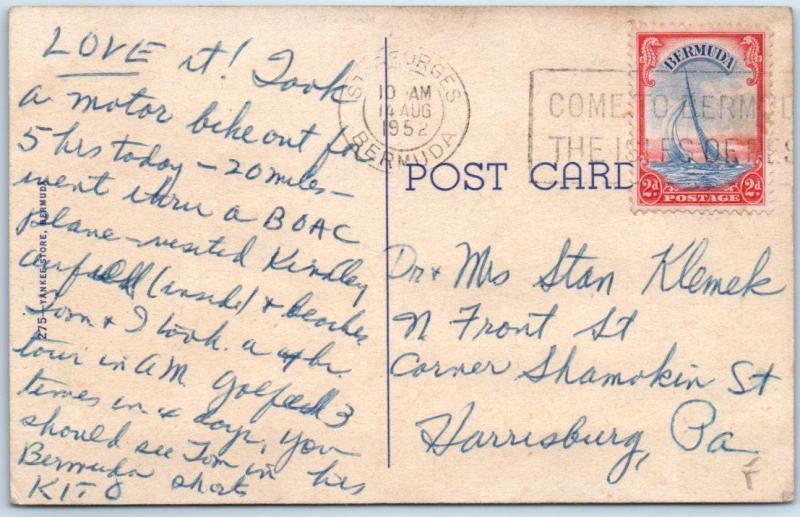 LOVE it! Took
a motor bike out for
5 hrs today - 20 miles -
went thru a BOAC
plane - visited Kindley
airfield (inside) & beaches
Tom & I took a 4 hr.
tour in A.M. Golfed 3
times in 4 days, you
should see Tom in his
Bermuda shorts
275-YANKEE STORE, BERMUDA
ST. GEORGES
10 AM
14 AUG
1952
BERMUDA
COME TO BERMUD
THE ISLES OF RES
BERMUDA
2d 2d
POSTAGE
POST CARD
Dr & Mrs Stan Klemek
N Front St
Corner Shamokin St
Harrisburg, Pa.
F